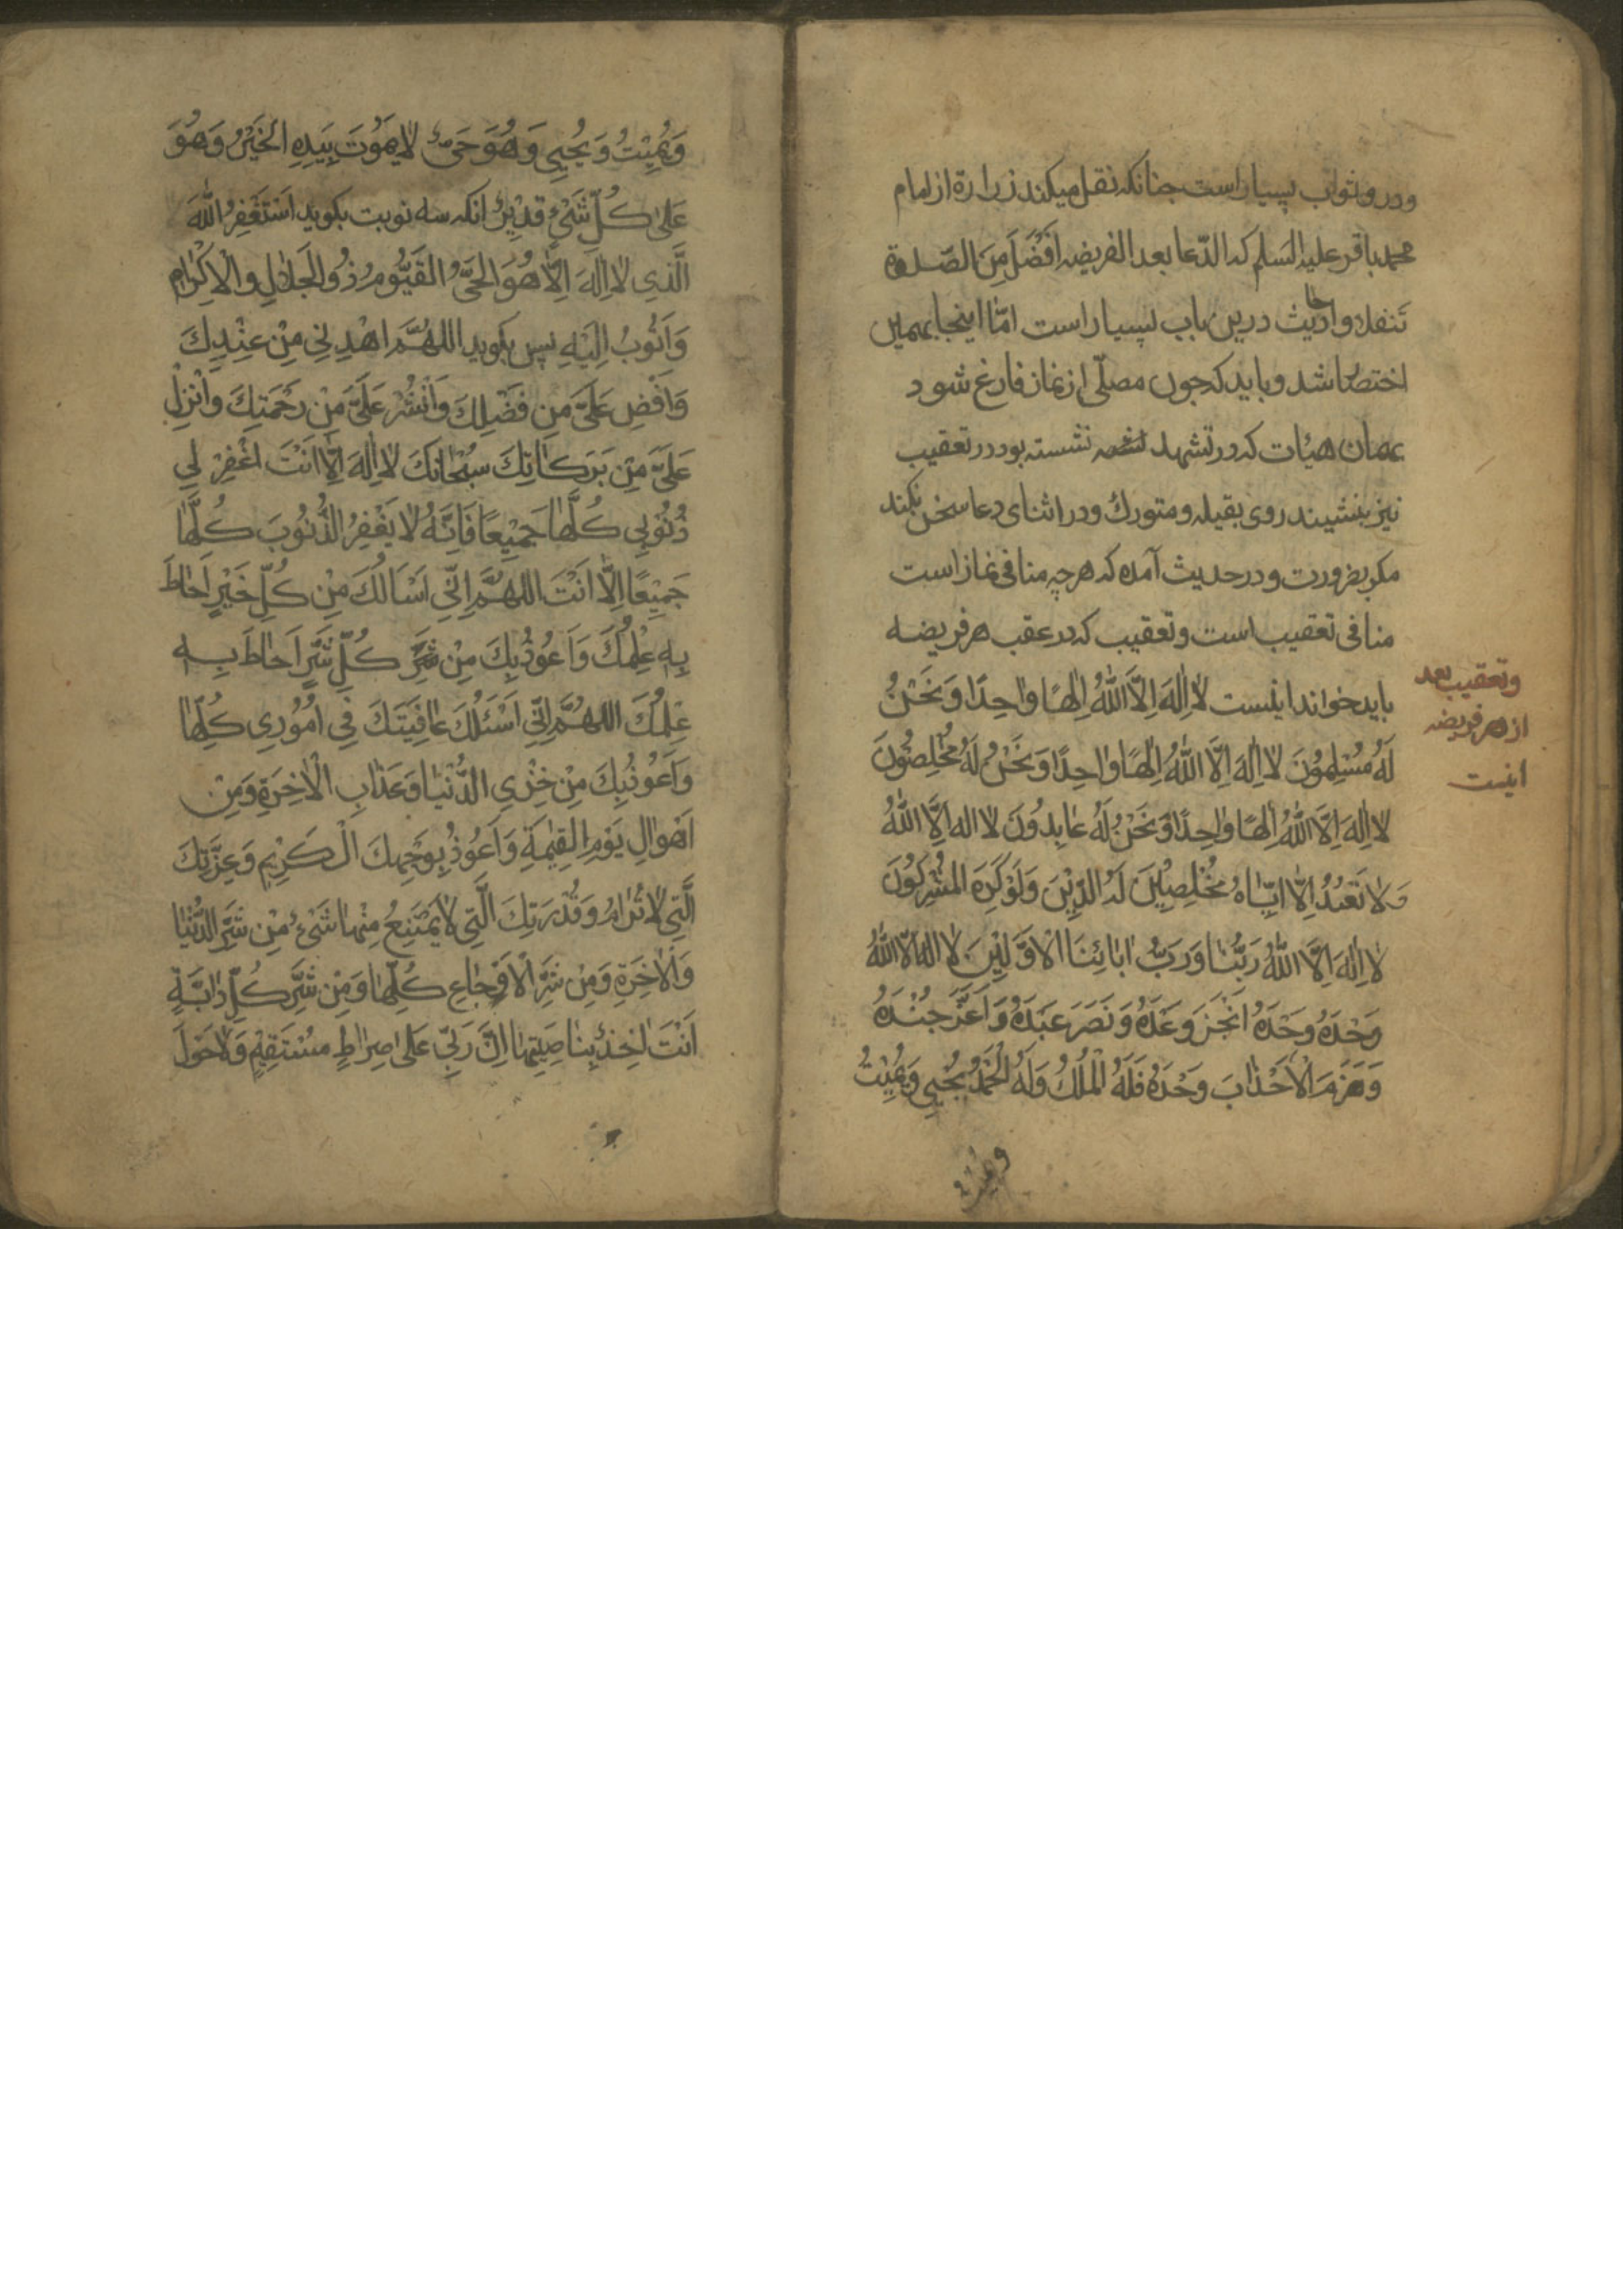 ودرو ثواب بسیار است چنانکه نقل میکند زرارة از امام
محمد باقر علیه السلم که الدّعا بعد الفریضه اَفْضَلَ مِنَ الصّلوة
تنفلا واحادیث درین باب بسیار است امّا اینجا بهمین
اختصار باشد و باید که چون مصلّی از نماز فارغ شود
بهمان هیات که در تشهد نشسته بود در تعقیب
نیز بنشیند روی بقبله ومتورك ودر اثنای دعا سخن نکند
مکر بضرورت ودر حدیث آمده که هرچه منافی نماز است
منافی تعقیب است وتعقیب که در عقب هر فریضه
باید خواند اینست لا اِلٰهَ اِلاَّ اللّٰهُ اِلٰهًا واحِدًا وَنَحْنُ
لَهُ مُسْلِمُونَ لا اِلٰهَ اِلاَّ اللّٰهُ اِلٰهًا واحِدًا وَنَحْنُ لَهُ مُخْلِصُونَ
لا اِلٰهَ اِلاَّ اللّٰهُ اِلٰهًا واحِدًا وَنَحْنُ لَهُ عابِدُونَ لا اله اِلاَّ اللّٰهُ
وَلا نَعْبُدُ اِلاّ اِيّاهُ مُخْلِصِينَ لَهُ الدِّينَ وَلَوْ كَرِهَ المُشْرِكُونَ
لا اِلٰهَ اِلاَّ اللّٰهُ رَبُّنا وَرَبُّ ابائِنَا الْاَوَّلِينَ لا اله الاّ اللّٰهُ
وَحْدَهُ وَحْدَهُ اَنْجَزَ وَعْدَهُ وَنَصَرَ عَبْدَهُ وَاَعَزَّ جُنْدَهُ
وَهَزَمَ الْاَحْذابَ وَحْدَهُ فَلَهُ الْمُلْكُ وَلَهُ الْحَمْدُ يُحْيِي وَيُمِيْتُ
وتعقیب بعد
از هر فریضه
اینست
وَيُمِيْتُ وَيُحْيِي وَهُوَ حَىٌّ لا يَمُوْتَ بِيَدِهِ الْخَيْرُ وَهُوَ
عَلى كُلِّ شَىْءٍ قَدِيْرٌ انکه سه نوبت بکوید اَسْتَغْفِرُ اللّٰهَ
الَّذِي لا اِلٰهَ اِلاّ هُوَ الْحَىُّ الْقَيُّومُ ذُو الْجَلالِ وَالْاِكْرامِ
وَاَتُوبُ اِلَيْهِ پس بکوید اللهُمَّ اهْدِنِي مِنْ عِنْدِكَ
وَاَفْضِ عَلَىَّ مِنْ فَضْلِكَ وَانْشُرْ عَلَىَّ مِنْ رَحْمَتِكَ وَاَنْزِلْ
عَلَىَّ مِنْ بَرَكاتِكَ سُبْحانَكَ لا اِلٰهَ اِلاّ اَنْتَ اغْفِرْ لِي
ذُنُوْبِي كُلَّها جَمِيْعًا فَاِنَّهُ لا يَغْفِرُ الذُّنُوبَ كُلَّها
جَمِيْعًا اِلاّ اَنْتَ اللهُمَّ اِنِّي اَسْاَلُكَ مِنْ كُلِّ خَيْرٍ اَحاطَ
بِهِ عِلْمُكَ وَاَعُوْذُ بِكَ مِنْ شَرِّ كُلِّ شَرٍّ اَحاطَ بِهِ
عِلْمُكَ اللهُمَّ اِنِّي اَسْئَلُكَ عافِيَتَكَ فِي اُمُوْرِي كُلِّها
وَاَعُوْذُ بِكَ مِنْ خِزْيِ الدُّنْيا وَعَذابِ الْاخِرَةِ وَمِنْ
اَهْوالِ يَوْمِ القِيٰمَةِ وَاَعُوْذُ بِوَجْهِكَ الْكَرِيْمِ وَعِزَّتِكَ
الَّتِي لا تُرامُ وَقُدْرَتِكَ الَّتِي لا يَمْتَنِعُ مِنْها شَىْءٌ مِنْ شَرِّ الدُّنْيا
وَالْاخِرَةِ وَمِنْ شَرِّ الْاَوْجاعِ كُلِّها وَمِنْ شَرِّ كُلِّ دابَّةٍ
اَنْتَ اخِذٌ بِناصِيَتِها اِنَّ رَبِّي عَلى صِراطٍ مُسْتَقِيْمٍ وَلا حَوْلَ